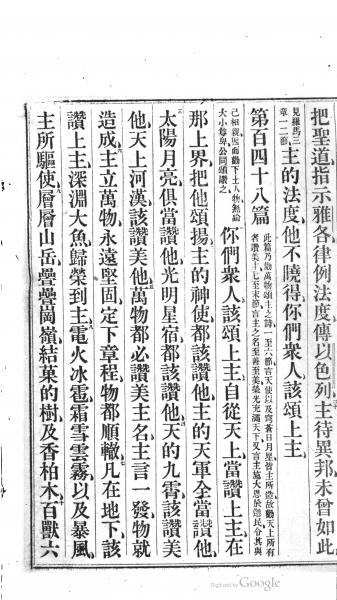 把聖道指示雅各律例法度傳以色列主待異邦未曾如此
見羅馬三
章一二節
主的法度他不曉得你們衆人該頌上主
第百四十八篇
此篇乃勸萬物頌主之詩一至六節言天使以及穹蒼日月星皆主所造故勸天上所有
者讚美十七至末節言主之名至善至美榮光充滿天下又言主施大恩於選民令其與
己相親因而勸下土人物無論
大小尊卑公同頌讚之
你們衆人該頌上主自從天上當讚上主在
那上界把他頌揚主的神使都該讚他主的天軍全當讚他
太陽月亮俱當讚他光明星宿都該讚他天的九霄該讚美
他天上河漢該讚美他萬物都必讚美主名主言一發物就
造成主立萬物永遠堅固定下章程物都順轍凡在地下該
讚上主深淵大魚歸榮到主電火冰雹霜雪雲霧以及暴風
主所驅使層層山岳疊疊岡嶺結菓的樹及香柏木百獸六
Digitized by Google